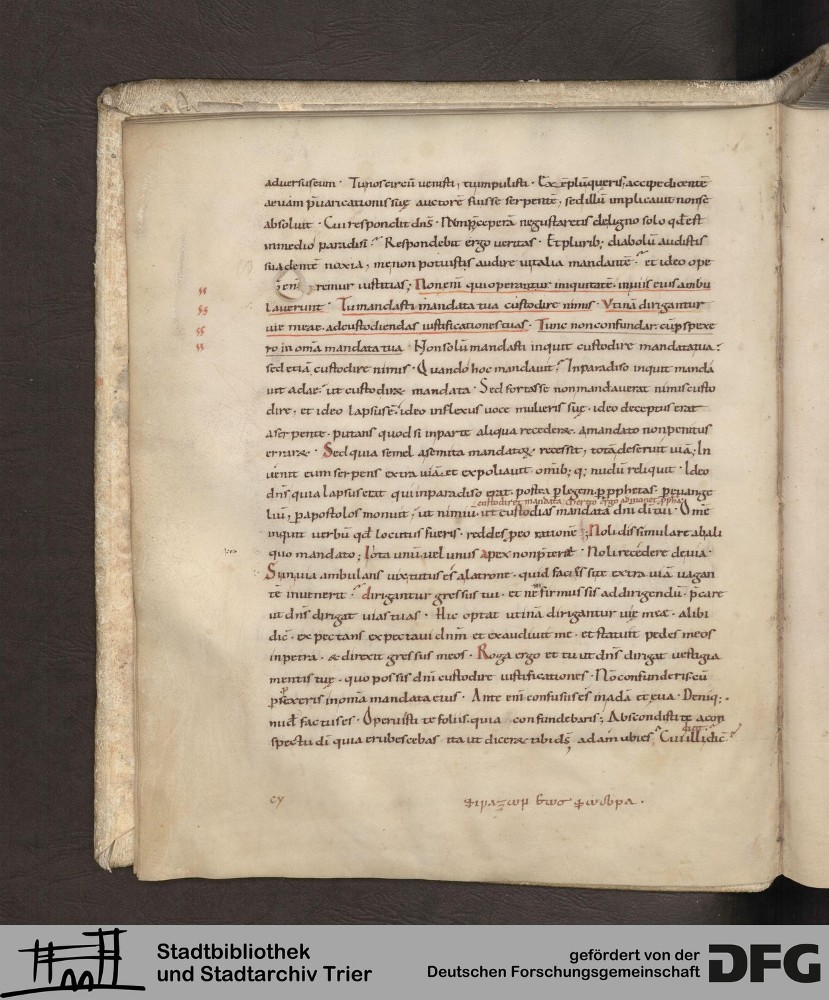 adversus eum · Tu nos circu venisti, tu impulisti · Ex exeplu queris, accipe dicente
aevam pvaricationis sue auctore fuisse serpente, sed illu implicavit non se
absoluit · Cui respondit dns · Nuqd pceperā ne gustaretis de ligno solo qd est
in medio paradisi · Respondebit ergo veritas · Et plurib; diabolu audistis
suadente noxia, me non potuistis audire vitalia mandante · et ideo ope
remur iustitias; Non eni qui operantur iniquitate · in viis eius ambu
laverunt · Tu mandasti mandata tua custodire nimis · Utinā dirigantur
vie meae · ad custodiendas iustificationes tuas · Tunc non confundar · cu pspexe
ro in omā mandata tua · Non solu mandasti inquit custodire mandata tua ·
sed etiā custodire nimis · Quando hoc mandavit? In paradiso inquit mandā
vit adae · ut custodiret mandata · Sed fortasse non mandaverat nimis custo
dire, et ideo lapsus ē · ideo inflexus voce mulieris sue · ideo deceptus erat
a serpente · putans quod si in parte aliqua recederet · a mandato non penitus
erraret · Sed quia semel a semita mandatoꝝ recessit, totā deseruit viā; In
venit eum serpens extra viā et expoliavit · omib; q; nudu reliquit · Ideo
dns quia lapsus erat qui in paradiso erat · postea p legem · p pphetas · p evange
liu, p apostolos monuit, ut nimiu · ut custodias mandata dni di tui · Ome
inquit verbu qd locutus fueris · reddes p eo ratione; Noli dissimulare ab ali
quo mandato; Iota unu vel unus apex non pterit · Noli recedere de via ·
Si in via ambulans vix tutus es a latrone · quid facies si te extra viā vagan
te invenerit? dirigantur gressus tui · et ne firmus sis ad dirigendu · pcare
ut dns dirigat vias tuas · Hic optat utinā dirigantur vie mee · alibi
dic · expectans expectavi dnm et exaudivit me · et statuit pedes meos
in petra · & direxit gressus meos · Roga ergo et tu ut dns dirigat vestigia
mentis tue · quo possis dni custodire iustificationes · Nō confunderis · cu
pspexeris in omā mandata eius · Ante eni confusus es in adā et eva · Deniq;
nud factus es · Operuisti te foliis · quia confundebaris; Abscondisti te a con
spectu di quia erubescebas · ita ut diceret tibi ds, adam ubi es · Cui ille dic
cy
Stadtbibliothek
und Stadtarchiv Trier
gefördert von der
Deutschen Forschungsgemeinschaft
DFG